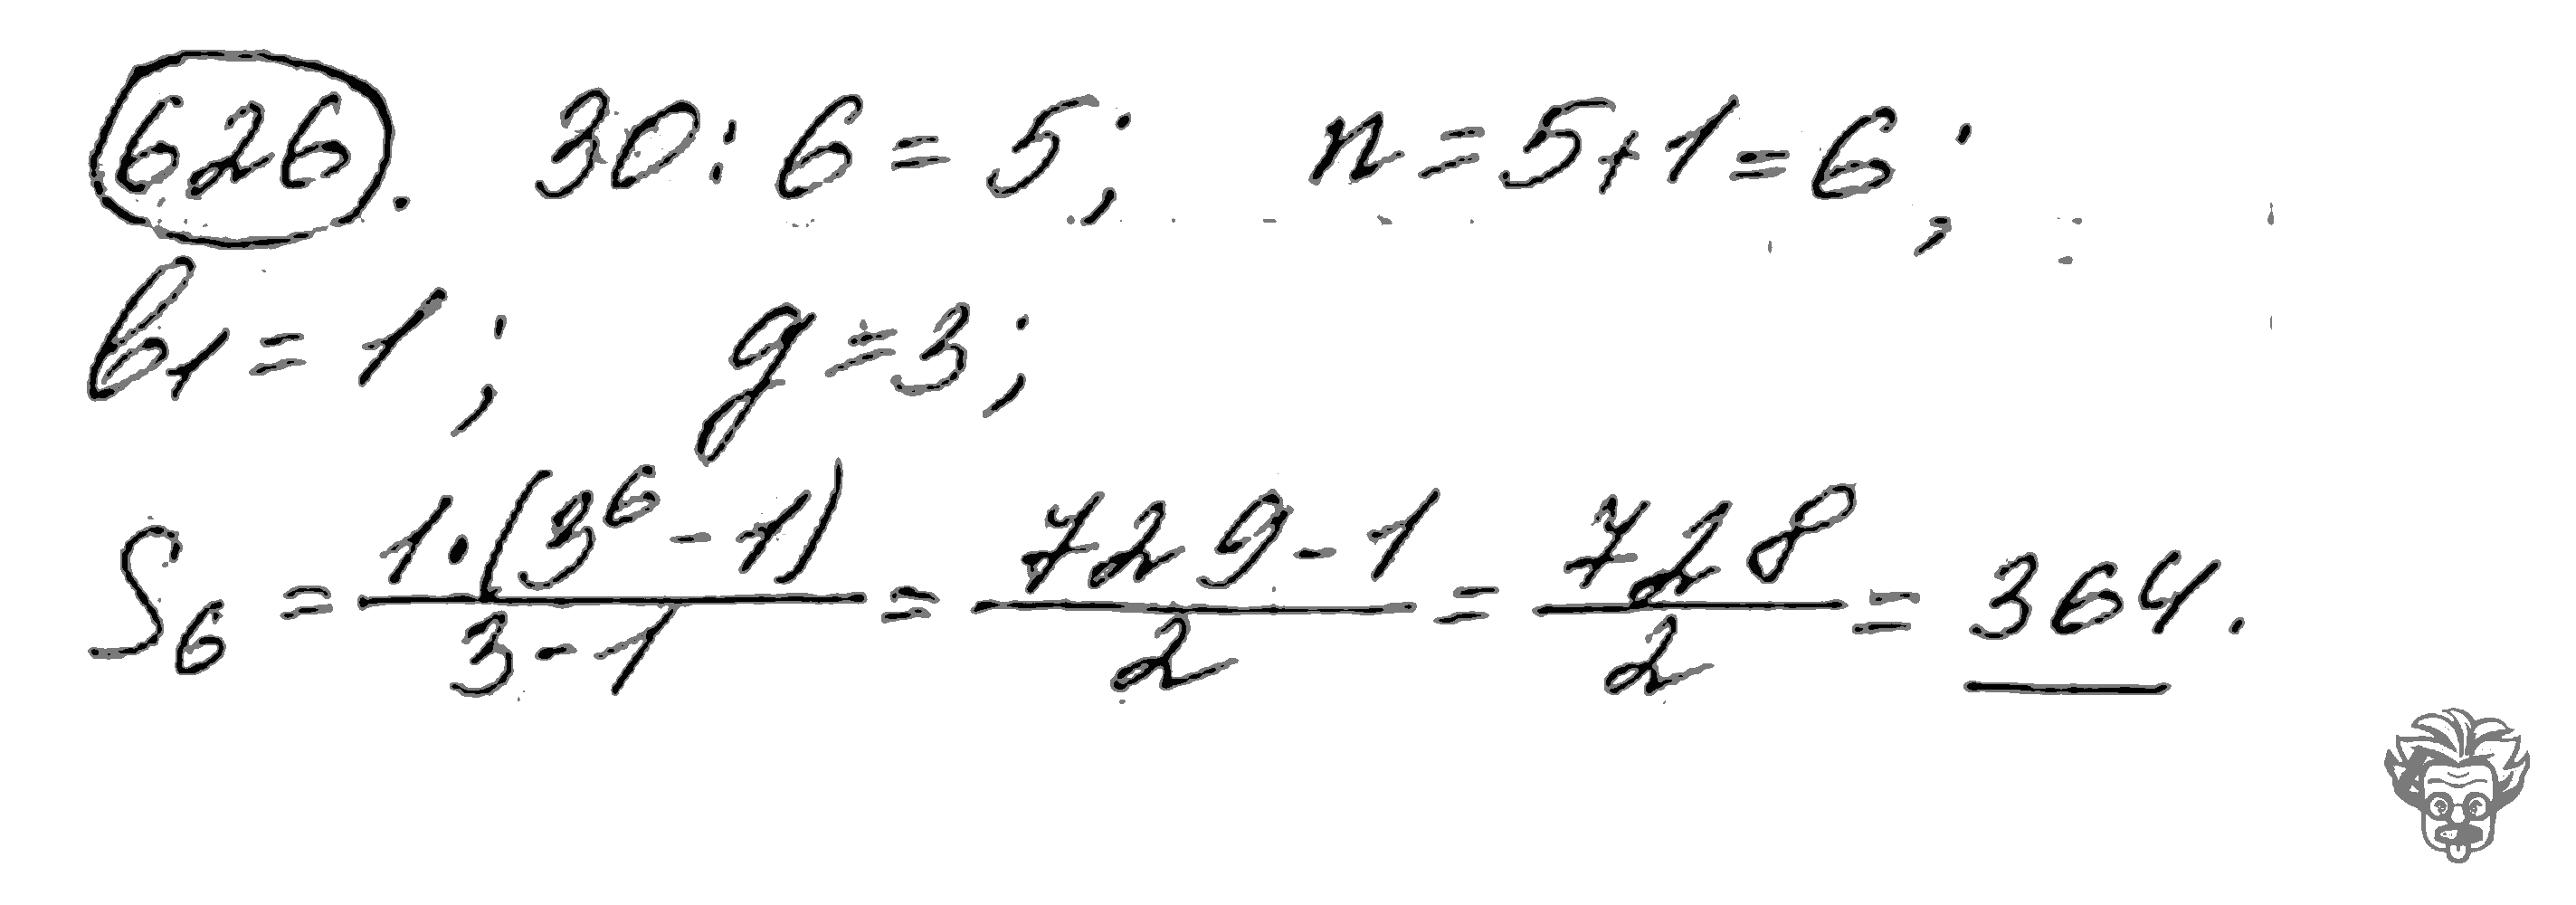 626. 30 : 6 = 5; n = 5+1 = 6;
b₁ = 1; q = 3;
S₆ = 1·(3⁶ - 1)/(3-1) = (729-1)/2 = 728/2 = 364.